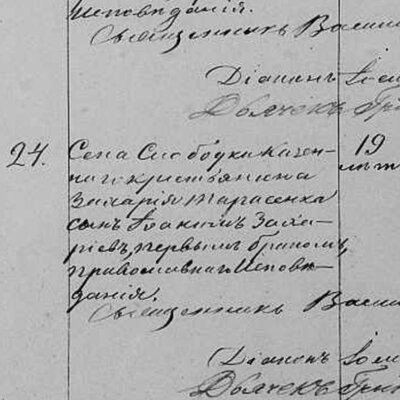 исповѣданія.
Священникъ Васи
Діаконъ
Дьячекъ Гри
24. Села Слободки 19
крестьянина лѣт
Захарія Тарасенка
сынъ Іоакимъ Заха-
ріевъ, первымъ бракомъ,
православнаго исповѣ-
данія.
Священникъ Васи
Діаконъ
Дьячекъ Гри